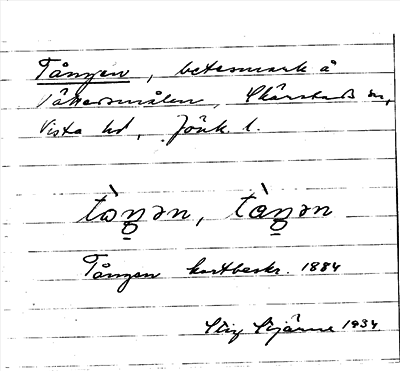 Tången, betesmark å
Våkersmålen, Skärstad sn,
Vista hd, Jönk. l.
tòŋən, tàŋən
Tången kartbeskr. 1884
Stig Stjärne 1934